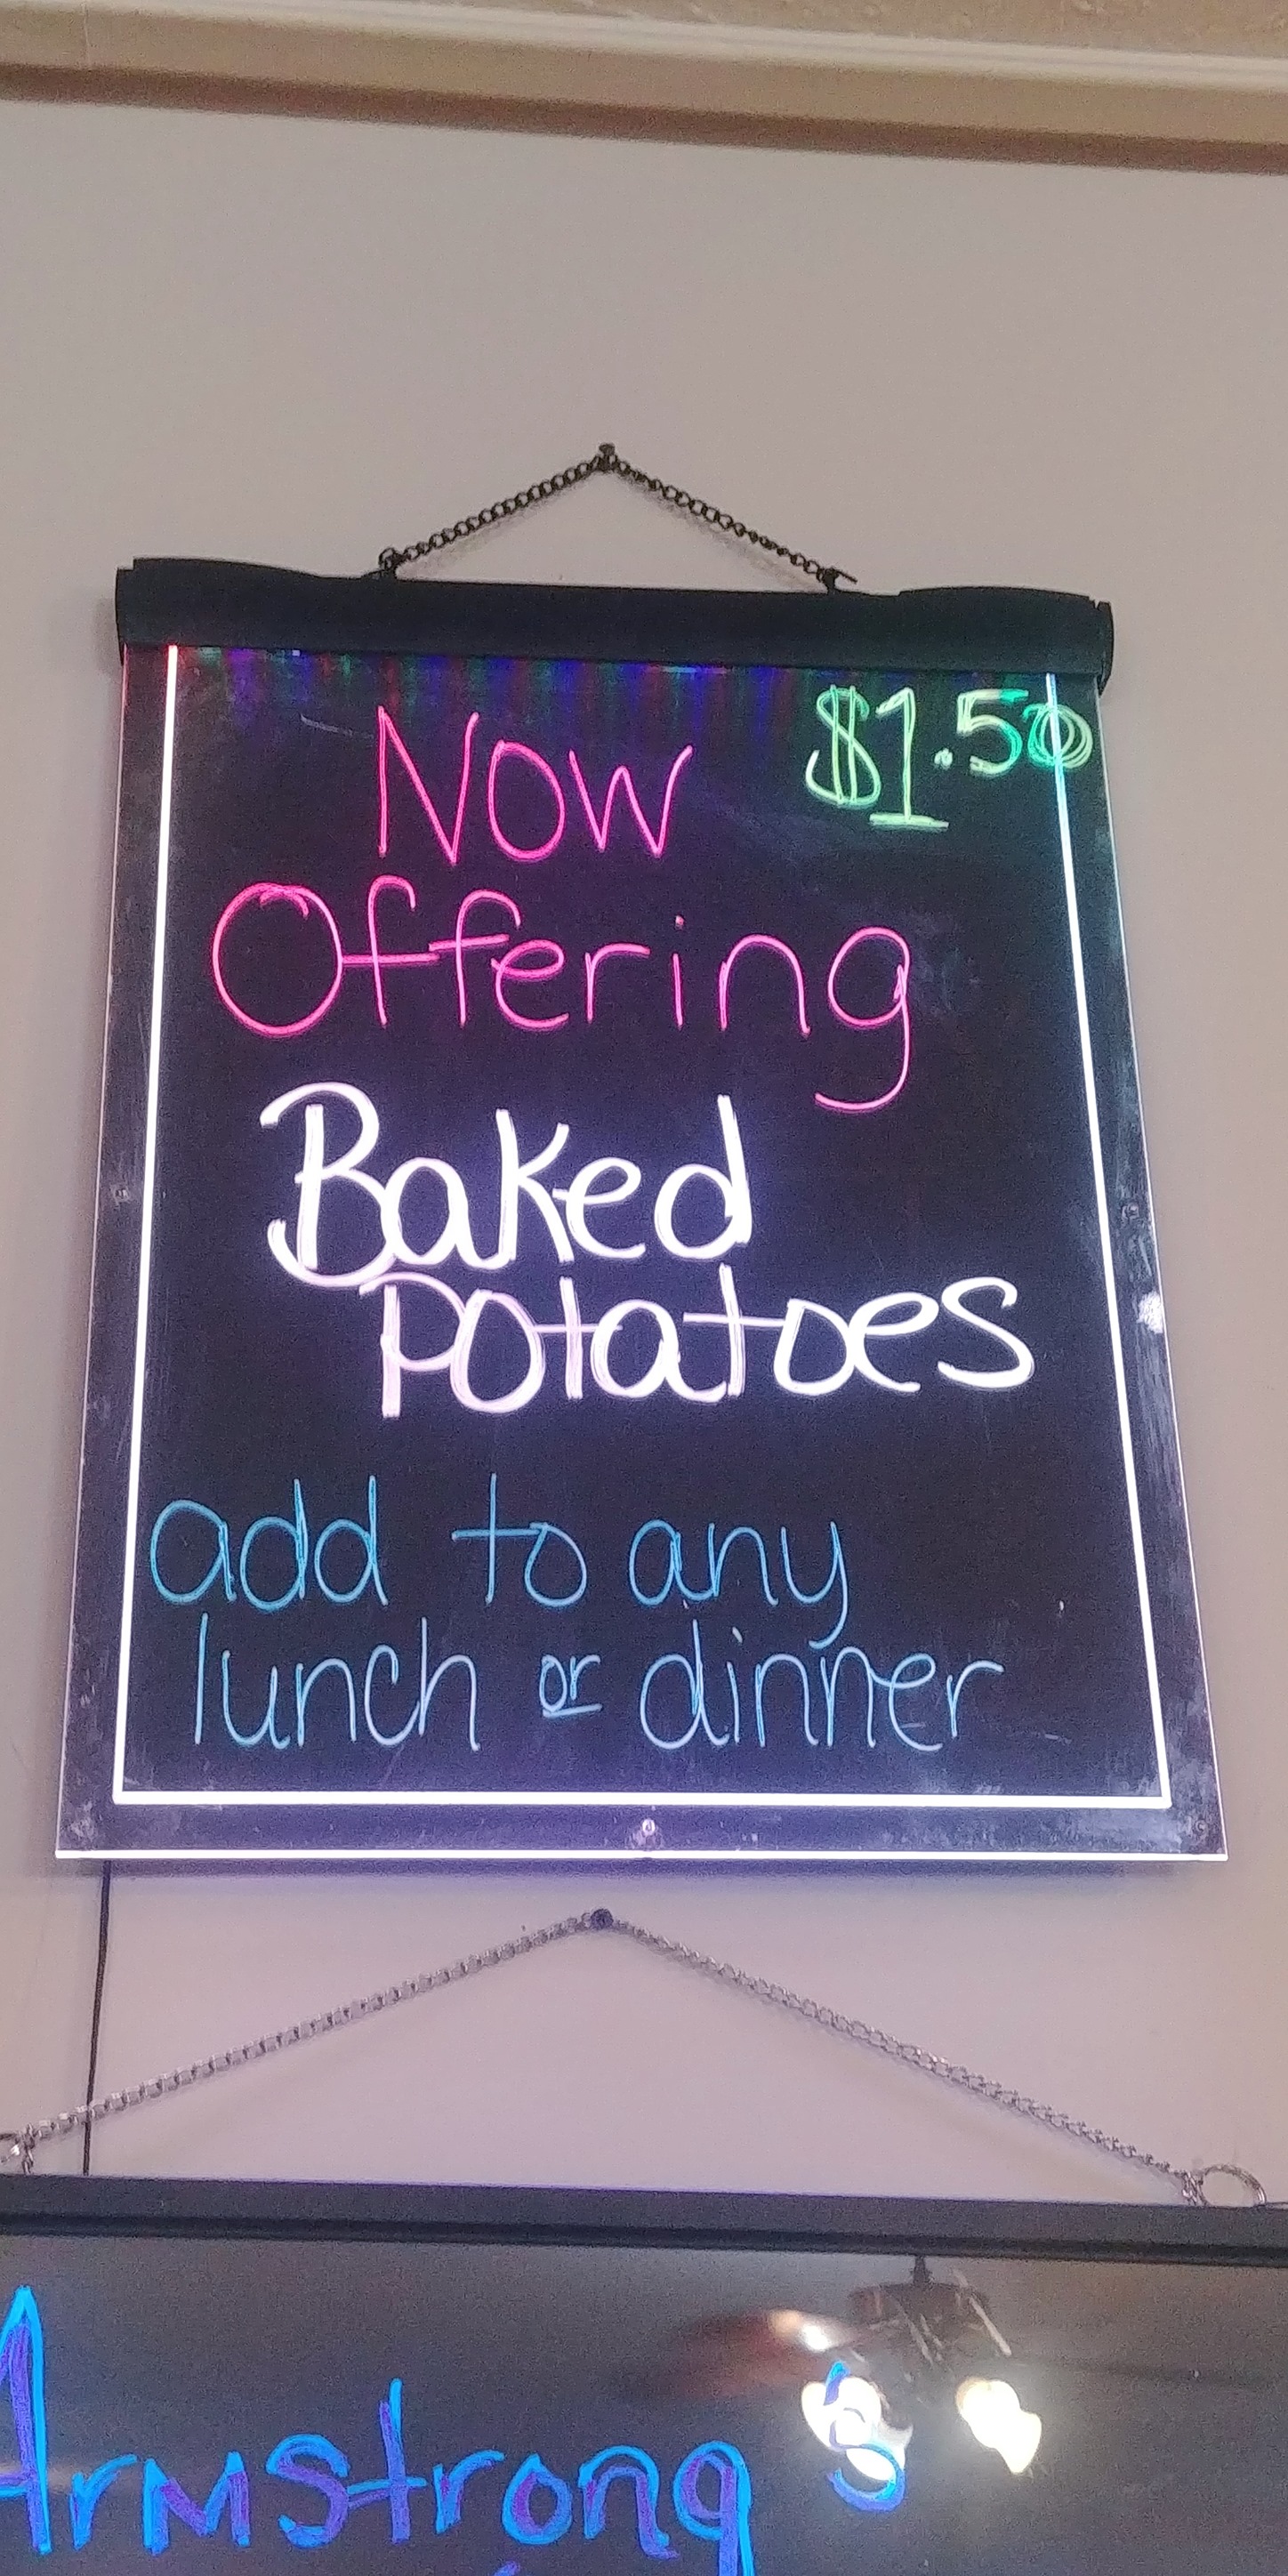 $1.50
Now
Offering
Baked
Potatoes
add to any
lunch or dinner
Armstrong's